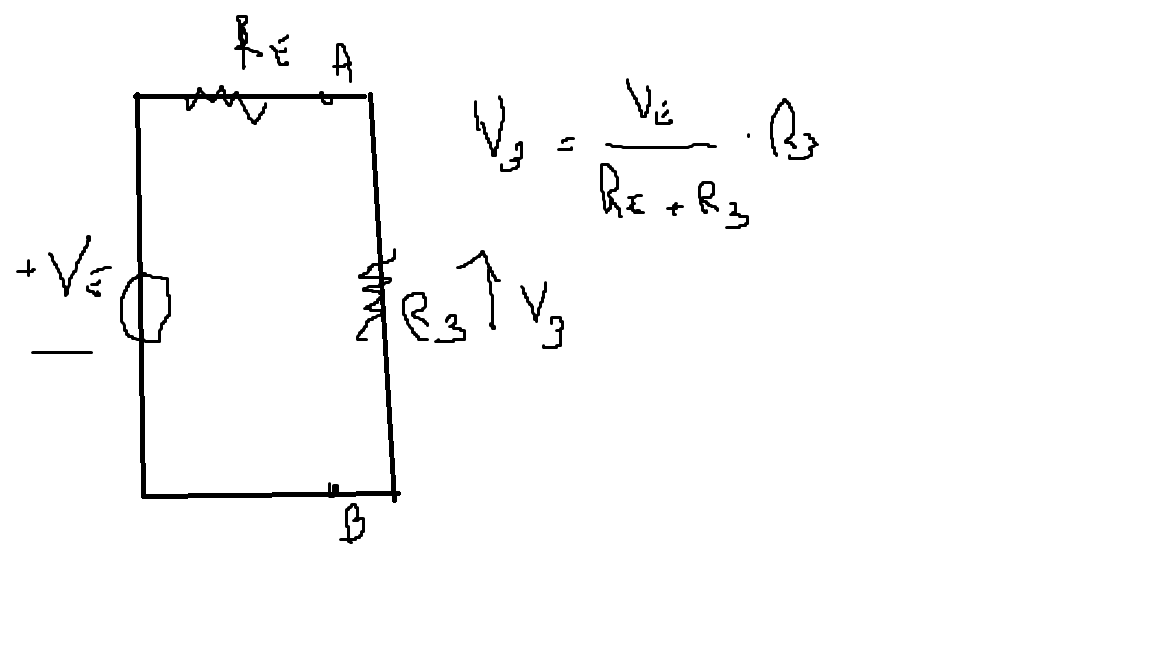 RE A
V3 = VE / RE + R3 · R3
+ VE
—
R3 V3
B